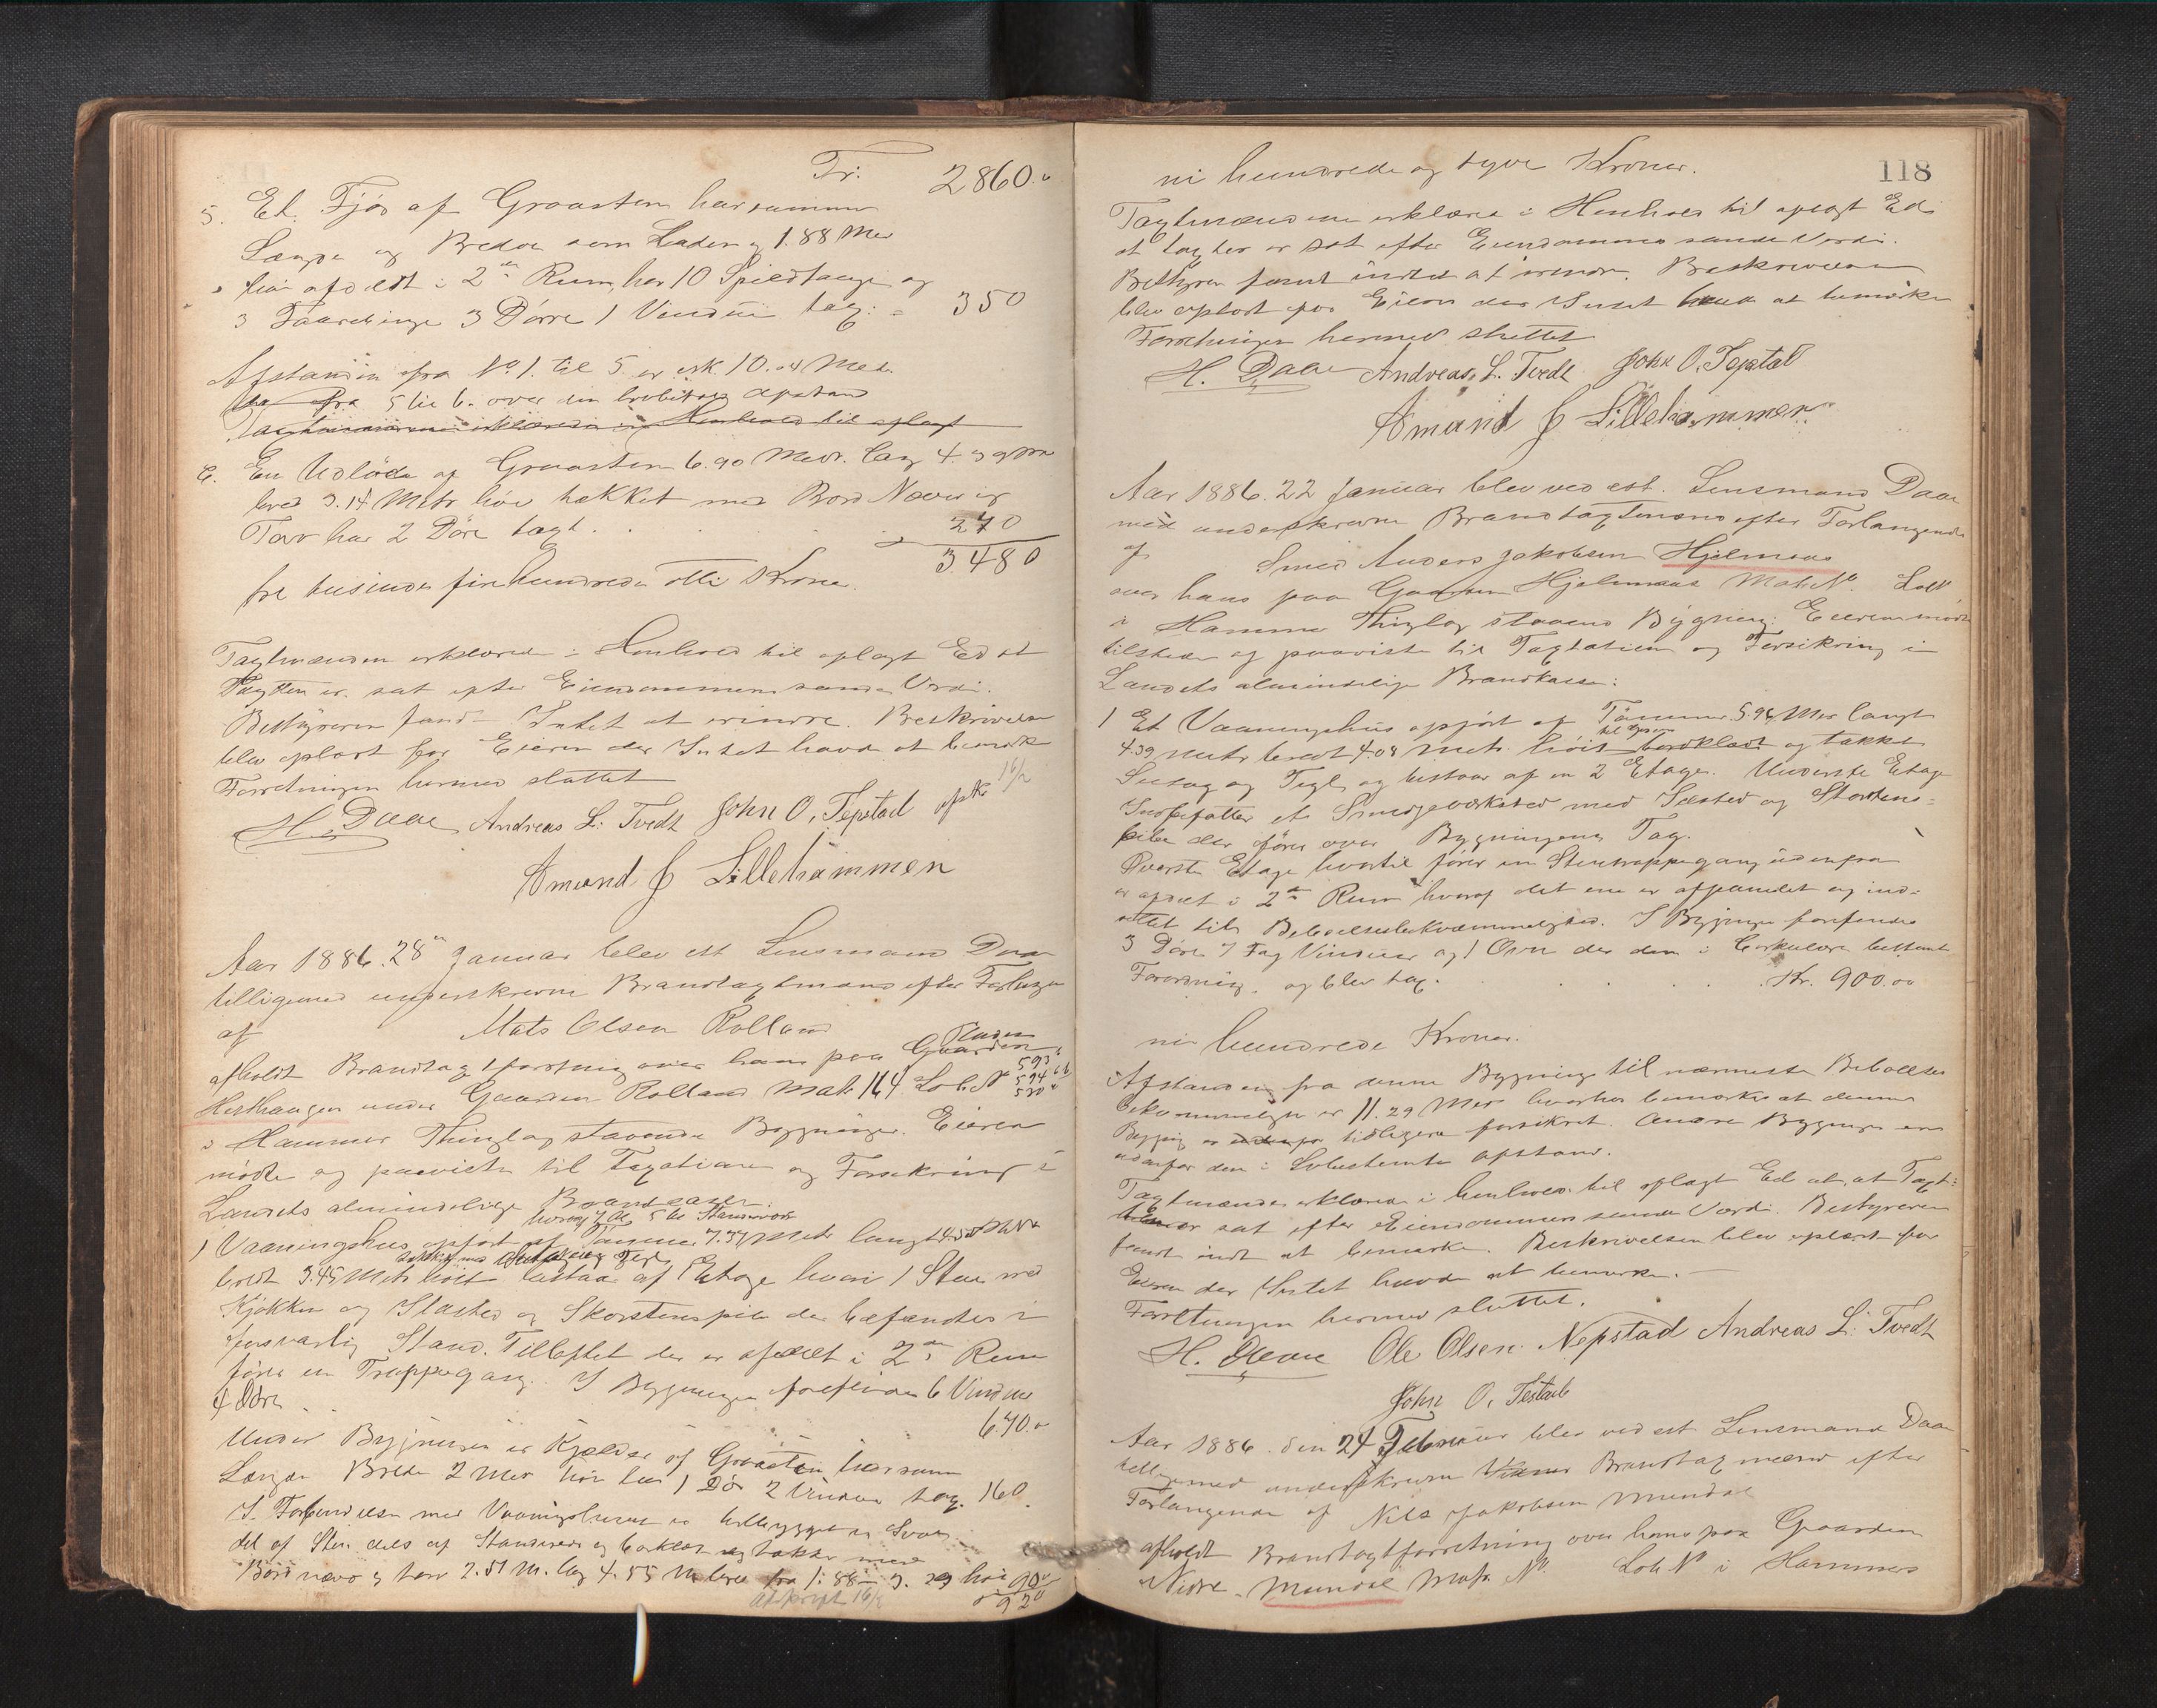 Tr. 2860."
5. Et Fjøs af Graasten har samme
Længde og Bredde som Laden og 1.88 Met
høi afdelt i 2de Rum, har 10 Spildtauge og
3 Faarebinge 3 Dørre 1 Vindue tax: - 350
Afstanden fra No 1. til 5 er ca. 10.04 Met.
do fra 5 til 6. over den lovbestemte afstand
Taxtmændene erklærede i Henhold til aflagt
6. En Udløde af Graasten 6.90 Metr. lang 4.39
bred 3.14 Metr høi tækket med Bord Næver og
Tørv har 2 Døre taxt. . . - 270
3480
tre tusinde fire hundrede otti Kroner.
Taxtmænden erklærede i Henhold til aflagt Ed at
Taxten er sat efter Eiendommens sande Værdi.
Bestyreren fandt Intet at erindre. Beskrivelse
blev oplæst for Eieren der Intet havde at bemærke
Forretningen hermed sluttet
H. Daae Andreas L. Tvedt John O. Tepstad afskr 16/2
Amund J Lillehammer
Aar 1886. 28de Januar blev est Lensmand Daae
tilligemed underskrevne Brandtaxtmænd efter Forlangende
af Mats Olsen Rolland
afholdt Brandtaxtforretning over hans paa Pladsen
Gaarden
Hesthaugen under Gaarden Rolland Mat: 164 Lob. No 593
594
530
i Hammer Thinglag staaende Bygninger. Eieren
mødte og paaviste til Taxation og Forsikring i
Landets almindelige Brandcasse:
1 Vaaningshus opført af Tømmer 7.37 Metr langt
bredt 3.45 Metr høit bestaar af 1 Etage hvori 1 Stue med
Kjøkken og Ildsted og Skorstenspibe der befandtes i
forsvarlig Stand. Til loftet der er afdelt i 2de Rum
fører en Trappegang. I Bygningen forefindes 6 Vinduer
4 Døre . . 640."
Under Bygningen er Kjælder af Graasten har samme
Længde Bredde 2 Met høi har 1 Dør 2 Vinduer tax. 160.
I Forbindelse med Vaaningshuset er tilbygget en Sval
del af Sten dels af Stænderværk og bordklædt og tækket med
Bord næver og tørv 2.51 M. lang 4.55 M bred fra 1.88 - 3.29 høi
afskrift 16/2
920
118
ni hundrede og tyve Kroner.
Taxtmændene erklærede i Henhold til aflagt Ed
at taxten er sat efter Eiendommens sande Værdi.
Bestyrer fandt intet at erindre. Beskrivelsen
blev oplæst for Eieren der Intet havde at bemærke
Forretningen hermed sluttet
H. Daae Andreas L. Tvedt John O. Tepstad
Amund J Lillehammer
Aar 1886. 22 Januar blev ved est. Lensmand Daae
med underskrevne Brandtaxtmænd efter Forlangende
af Smed Anders Jakobsen Hjelmaas
over hans paa Gaarden Hjelmaas Mat. No. Lob No
i Hammer Thinglag staaende Bygning. Eieren mødte
tilstede og paaviste til Taxtation og Forsikring i
Landets almindelige Brandkasse:
1 Et Vaaningshus opført af Tømmer 5.96 Met langt
4.39 Metr bredt 4.08 Metr. høit bordklædt og tækket
og Tegl, og bestaar af en 2 Etage. Underste Etage
Indbefatter et Smedjeværksted med Ildsted og Skorstens-
pibe der fører over Bygningens Tag.
Øverste Etage hvortil fører en Stentrappegang udenfra
er afdelt i 2de Rum hvoraf det ene er afpanelet og ind-
rettet til Beboelsesbekvemmelighed. I Bygningen forefindes
3 Døre 7 Fag Vinduer og 1 Ovn der den i Cirkulære bestemte
Forordning, og blev tax. . . . . Kr. 900.00
ni hundrede Kroner.
Afstanden fra denne Bygning til nærmeste Beboelses
bekvemmelighed er 11.29 Met hvorhos bemærkes at denne
Bygning er tidligere forsikret. Andre Bygninger ere
udenfor den i Lovbestemte afstand.
Taxtmændene erklærede i henhold til aflagt Ed at Taxt-
en er sat efter Eiendommens sande Værdi. Bestyreren
fandt intet at bemærke. Beskrivelsen blev oplæst for
Eieren der Intet havde at bemærke.
Forretningen hermed sluttet.
H. Daae Ole Olsen Nepstad Andreas L. Tvedt
John O. Tepstad
Aar 1886. den 24 Februar blev ved est Lensmand Daae
tilligemed underskrevne Brandtaxmænd efter
Forlangende af Nils Jakobsen Mundal
afholdt Brandtaxtforretning over hans paa Gaarden
Nedre Mundal Matr. No Lob No i Hammers